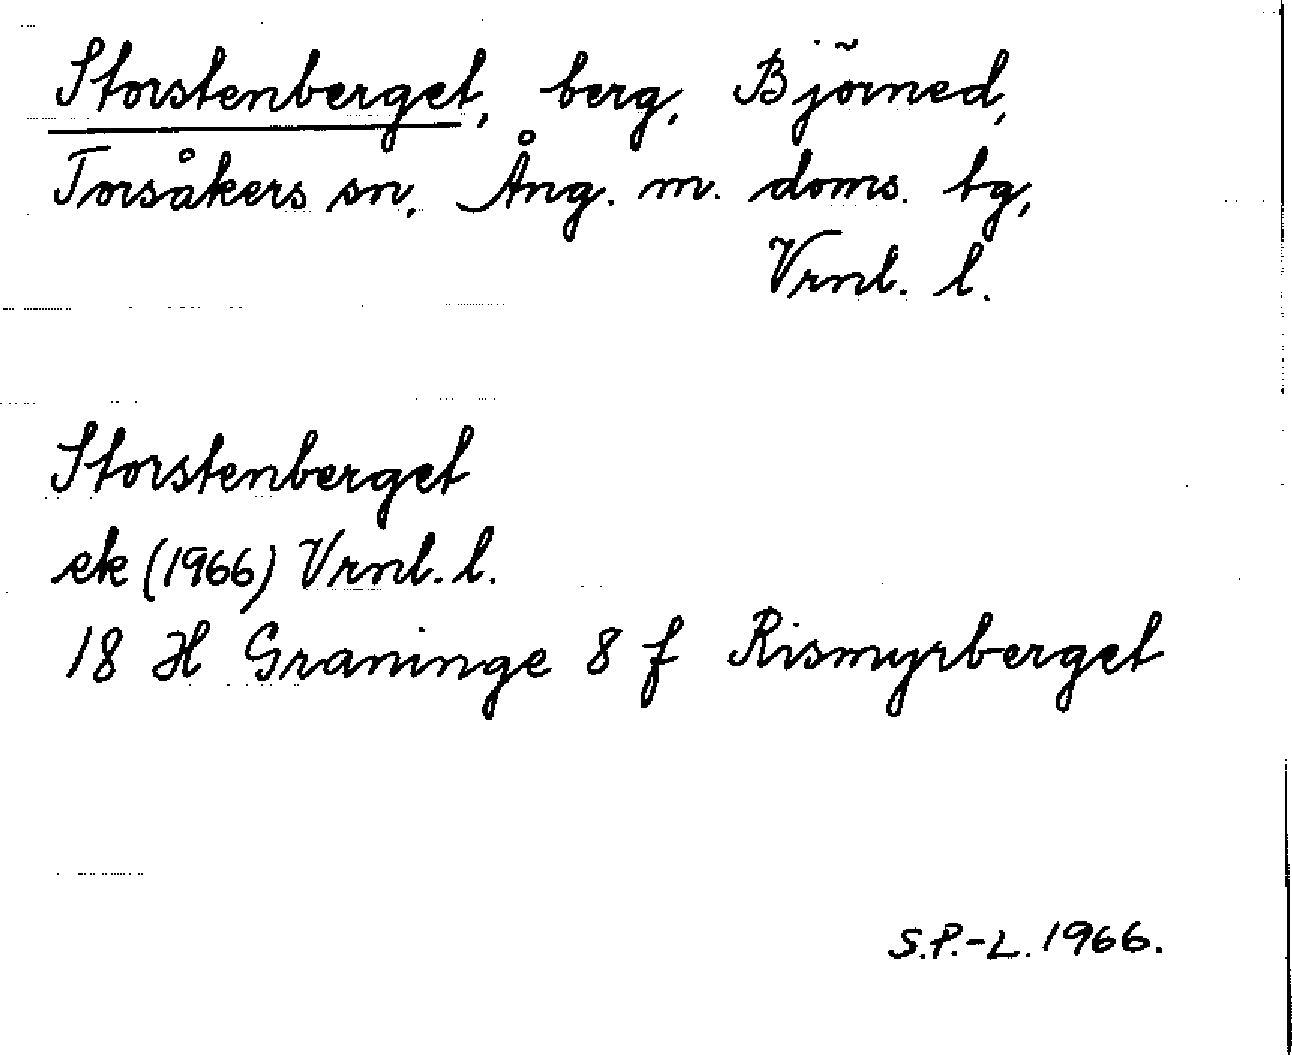 Storstenberget, berg, Björned,
Torsåkers sn, Ång. m. doms. tg,
Vrnl. l.
Storstenberget
ek (1966) Vrnl. l.
18 H Graninge 8 f Rismyrberget
S.P.-L. 1966.